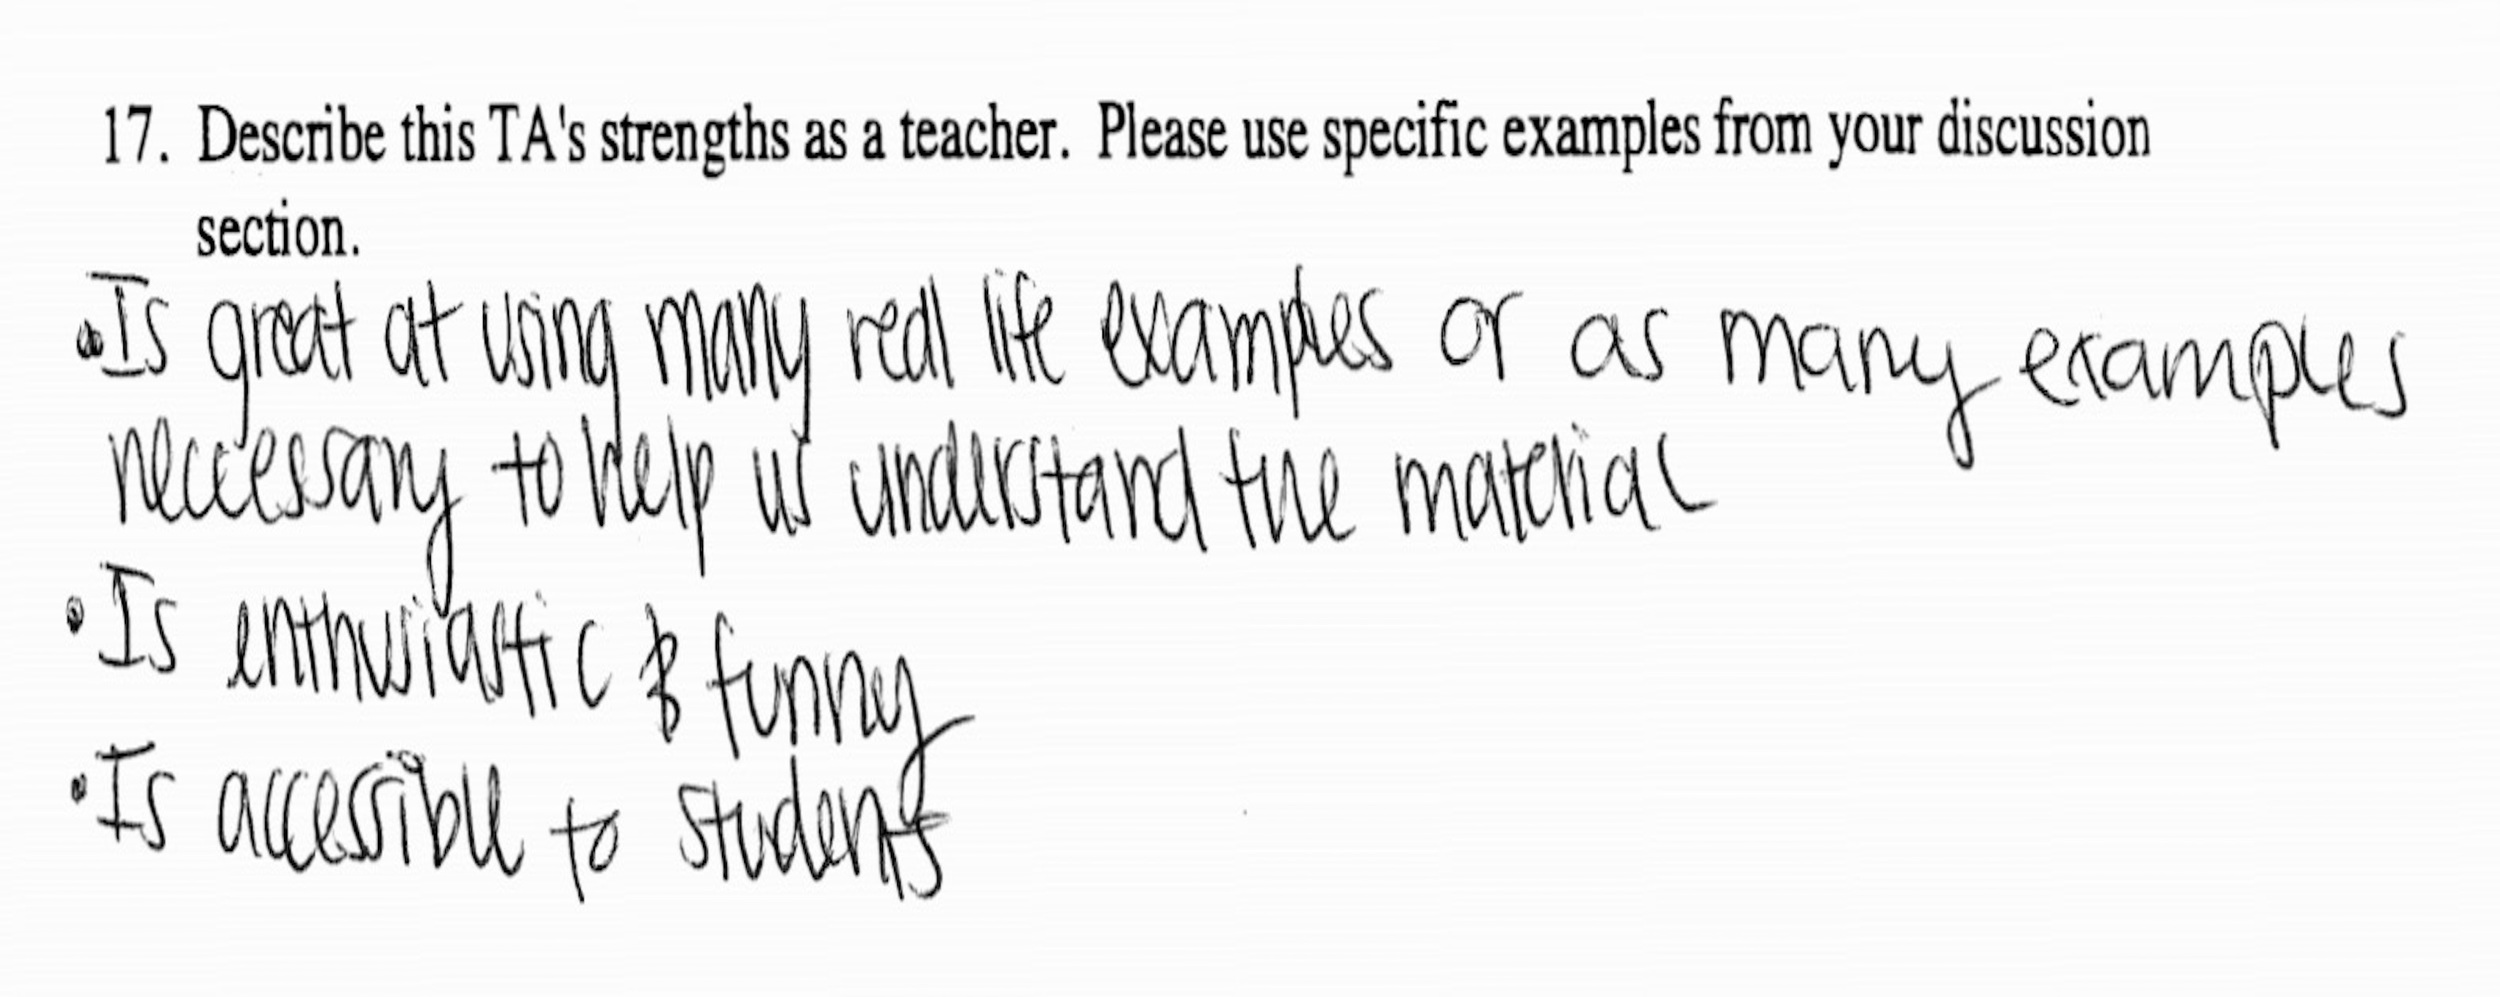 17. Describe this TA's strengths as a teacher. Please use specific examples from your discussion
section.
•Is great at using many real life examples or as many examples
neccessary to help us understand the material
•Is enthusiastic & funny
•Is accessible to students